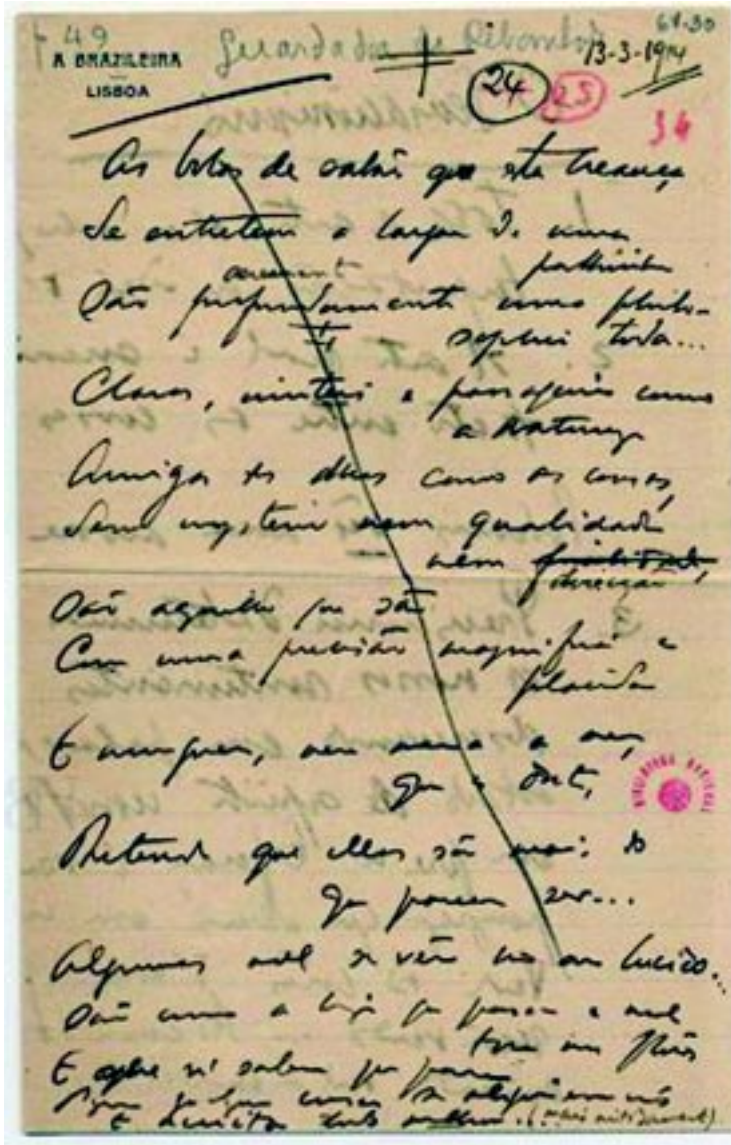 49
A BRAZILEIRA
LISBOA
Guardador de Rebanhos
13-3-1914
24 25
34
As bolas de sabão que esta creança
Se entretem a largar de uma
palhinha
São profundamente uma philo-
sophia toda...
Claras, inuteis e passageiras como
a Natureza
Amigas dos olhos como as cousas,
Sem mysterio nem qualidade
nem
direcção
São aquillo que são
Com uma precisão
placida
E ninguem, nem
que a deita,
Pretende que ellas são mais do
que parecem ser...
Algumas mal se vêem no ar lucido...
São como a brisa que passa e mal
toca nas flores
E que só sabemos que passa
Porque qualquer cousa se aligeira em nós
E acceita tudo melhor. (mais nitidamente)